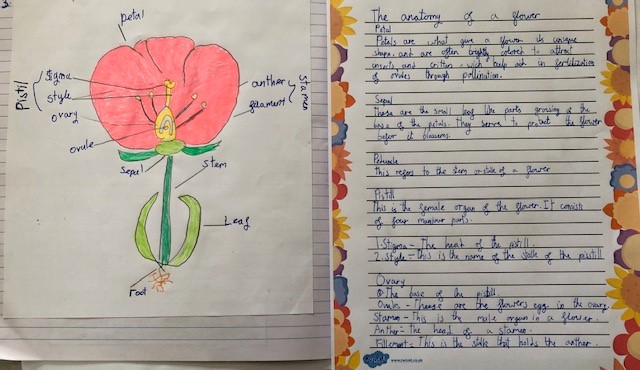 petal
Stigma
style
ovary
Pistil
ovule
anther
filament
Stamen
Sepal
stem
Leaf
root
The anatomy of a flower
Petal
Petals are what give a flower its unique
shape, and are often brightly colored to attract
insects and critters, wich help out in fertilization
of ovules through pollination.
Sepal
these are the small leaf like parts growing of the
base of the petals. they serve to protect the flower
before it blossoms.
Peduncle
this refers to the stem or stalk of a flower
Pistil
This is the female organ of the flower. It consists
of four manjour parts.
1. Stigma - The head of the pistill.
2. Style - This is the name of the stalk of the pisstill
Ovary
The base of the pistill
Ovule - These are the flowers egg in the ovary
Stamen - This is the male organ in a flower.
Anther - the head of a stamen.
Fillement - This is the stalk that holds the anther.